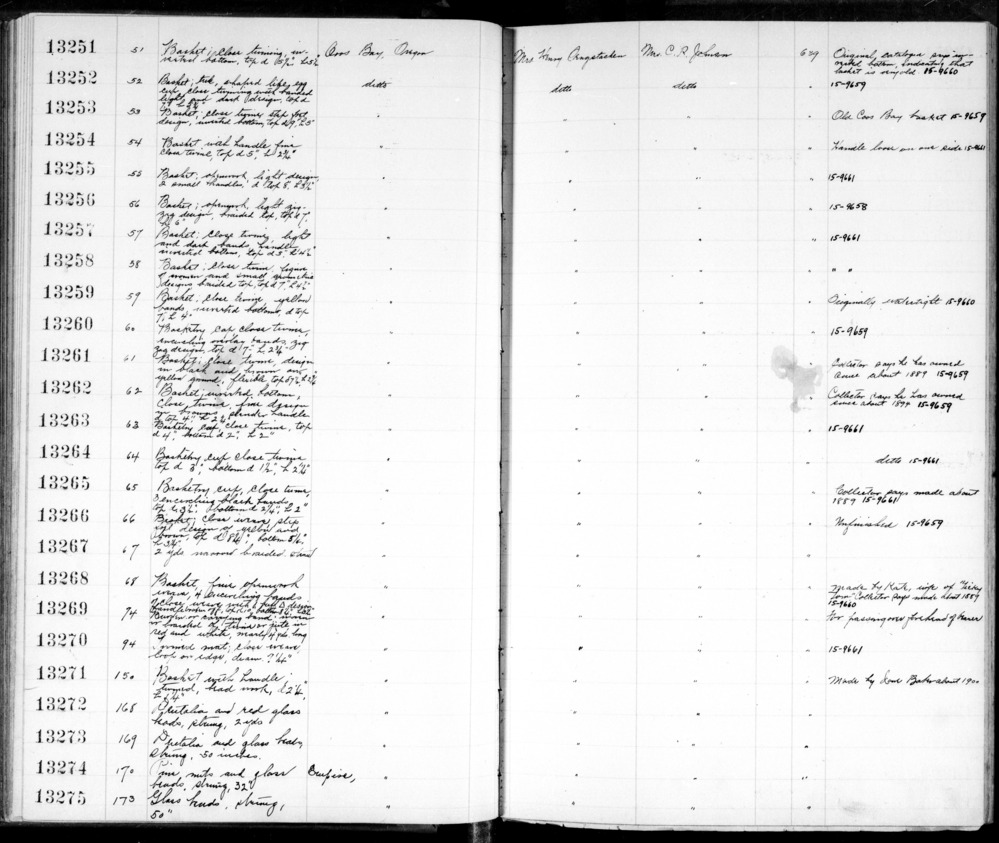 13251 51 Basket; close twining, in- Coos Bay, Oregon Mrs. Henry Sengstacken Mrs C. R. Johnson 629 Original catalogue says in-
verted bottom, top d L 5½ verted bottom, indicating that
basket is very old 15-9660
13252 52 Basket; shaped like egg ditto ditto ditto 15-9659
cup close twining with banded
light and dark design, top d
13253 53 Basket; close twine step " " " " Old Coos Bay basket 15-9659
design, inverted bottom, top d 9", L 5"
13254 54 Basket with handle fine " " " " Handle loose on one side 15-9661
close twine, top d 5", L 2¾"
13255 55 Basket; openwork, light design " " " " 15-9661
2 small handles, d top 8",
13256 56 Basket; openwork, light zig- " " " " 15-9658
zag design, braided top, top d 7",
L 6"
13257 57 Basket; close twine, light " " " " 15-9661
and dark bands, handles
inverted bottom, top d 5", L 4½"
13258 58 Basket; close twine, figures " " " " " "
of women and small
designs braided top, top d 7", L 4½"
13259 59 Basket, close twine yellow " " " " Originally watertight 15-9660
bands, inverted bottom, d top
7", L 4"
13260 60 Basketry cup close twine, " " " " 15-9659
encircling overlay bands, zig
zag design, top d 7" L 2¾
13261 61 Basket; close twine, design " " " " Collector says he has owned
in black and brown on since about 1889 15-9659
yellow ground, flexible top
13262 62 Basket, inverted bottom, " " " " Collector says he has owned
close twine, fine design since about 1894 15-9659
in brown, slender handle
d top 4", L 2¾
13263 63 Basketry cup, close twine, top " " " " 15-9661
d 4", bottom d 2", L 2"
13264 64 Basketry cup close twine " " " " ditto 15-9661
top d 3", bottom d 1½", L 2¼"
13265 65 Basketry cup, close twine, " " " " Collector says made about
3 encircling black bands 1889 15-9661
top d 3½", bottom d 2¼", L 2"
13266 66 Basket; close weave, step " " " " Unfinished 15-9659
design of yellow and
brown, top d 8¼", bottom 5½",
L 3¾"
13267 67 2 yds narrow braided " " " "
13268 68 Basket, fine openwork " " " " Made by Kate, wife of "Tichy
weave, 4 encircling bands Tom" Collector says made about 1889
of close weave with design 15-9660
13269 74 Burden or carrying band woven " " " " For passing over forehead of bearer
or braided of twine or jute in
red and white, nearly 4 yds. long
13270 94 mat; close weave " " " " 15-9661
loop on edge, diam. 7¼"
13271 150 Basket with handle; " " " " Made by Jane Baker about 1900
twined, bead work, d 2½",
13272 168 Dentalia and red glass " " " "
beads, strung, 2 yds
13273 169 Dentalia and glass beads, " " " "
strung, 50 inches.
13274 170 Pine nuts and glass Empire, " " "
beads, strung, 32"
13275 173 Glass beads, strung, " " " "
50"